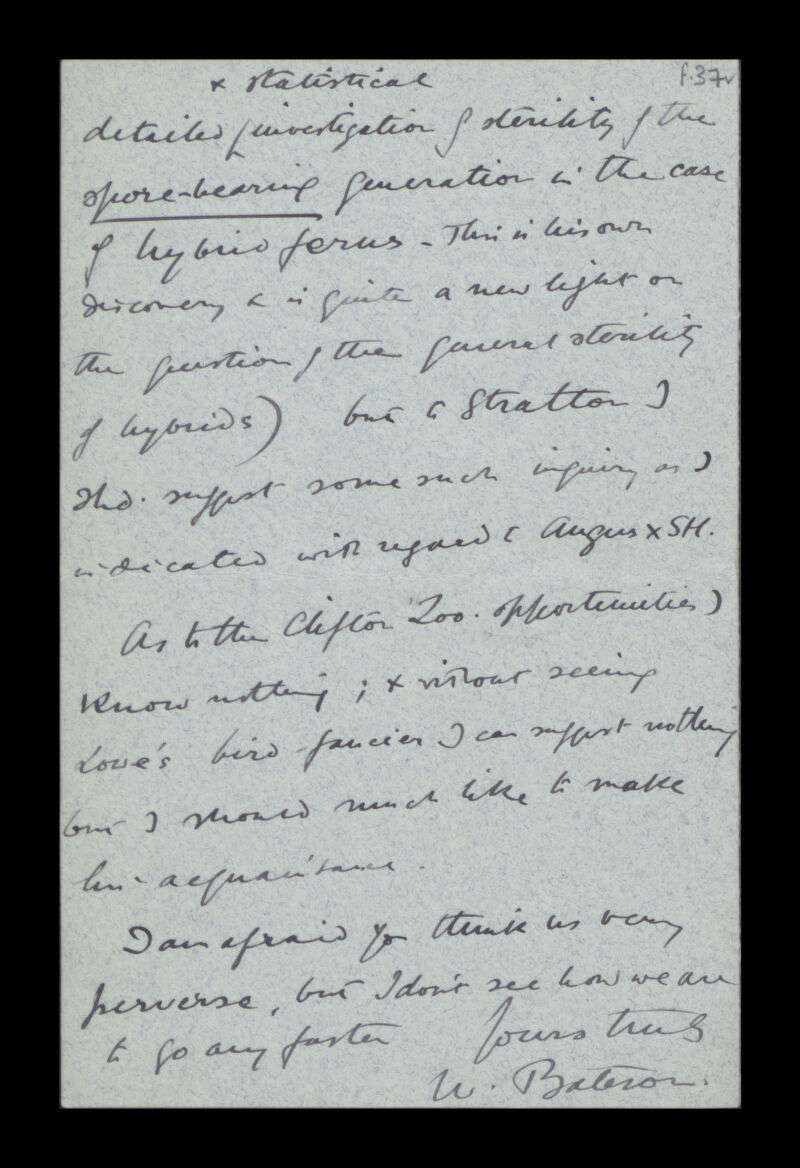 f.37v
& statistical
detailed / investigation of sterility of the
spore-bearing generation in the case
of hybrid ferns - This is his own
discovery & is quite a new light on
the question of the general sterility
of hybrids) but to Stratton I
shd. suggest some such inquiry as I
indicated with regard to Angus x SH.
As to the Clifton Zoo. opportunities I
know nothing ; & without seeing
Lowe's bird-fancier I can suggest nothing
but I should much like to make
his acquaintance.
I am afraid you think us very
perverse, but I don't see how we are
to go any faster Yours truly
W. Bateson.